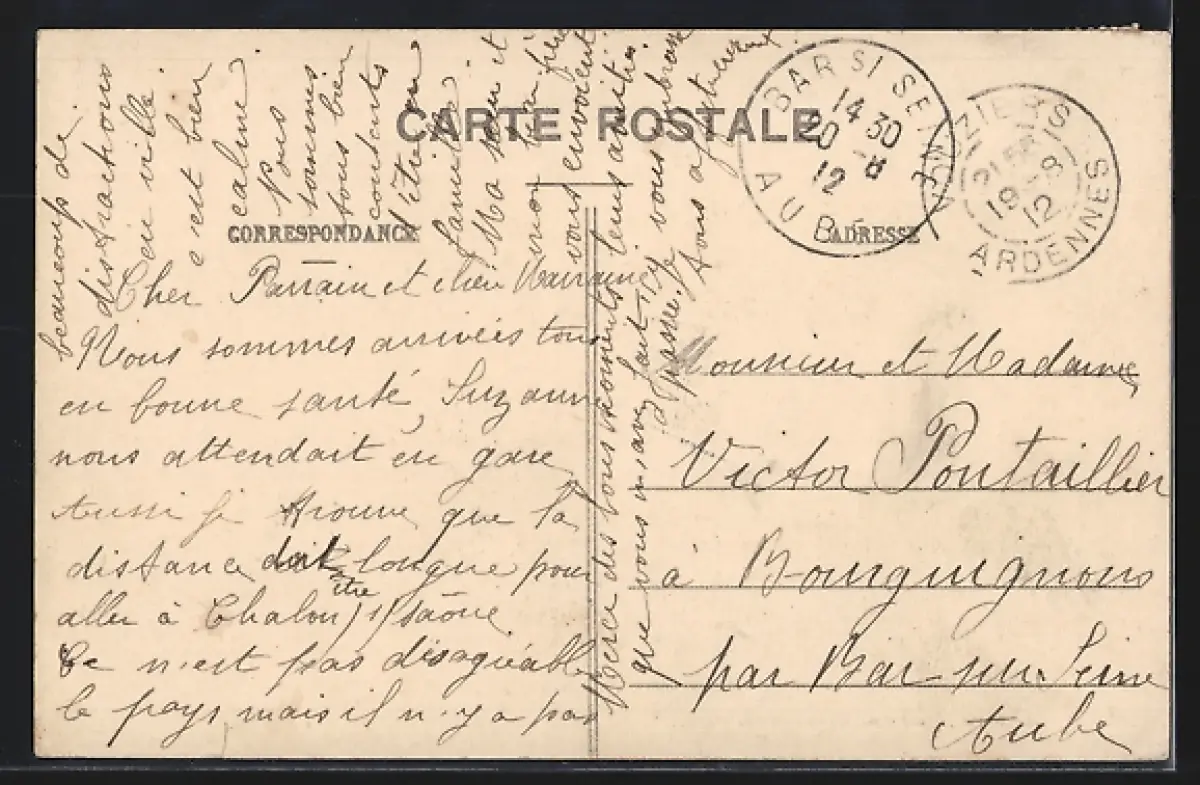 CARTE POSTALE
CORRESPONDANCE
ADRESSE
BAR S/ SEINE
14 30
20 - 8
12
AUBE
ZIERS
21
19 - 8
12
ARDENNES
Cher Parrain et chère Marraine
Nous sommes arrivées tous
en bonne santé, Suzanne
nous attendait en gare
Aussi je trouve que la
distance doit être longue pour
aller à Chalon s/ Saône
Ce n'est pas désagréable
le pays mais il n'y a pas
beaucoup de
distractions
en ville
c'est bien
calme
Nous
sommes
tous bien
contents
d'être en
famille
Ma sœur et
mon frère
vous envoient
leurs amitiés.
Merci des bons moments
que vous m'avez fait
passer. Je vous embrasse
tous
Monsieur et Madame
Victor Pontaillier
à Bourguignons
par Bar-sur-Seine
Aube